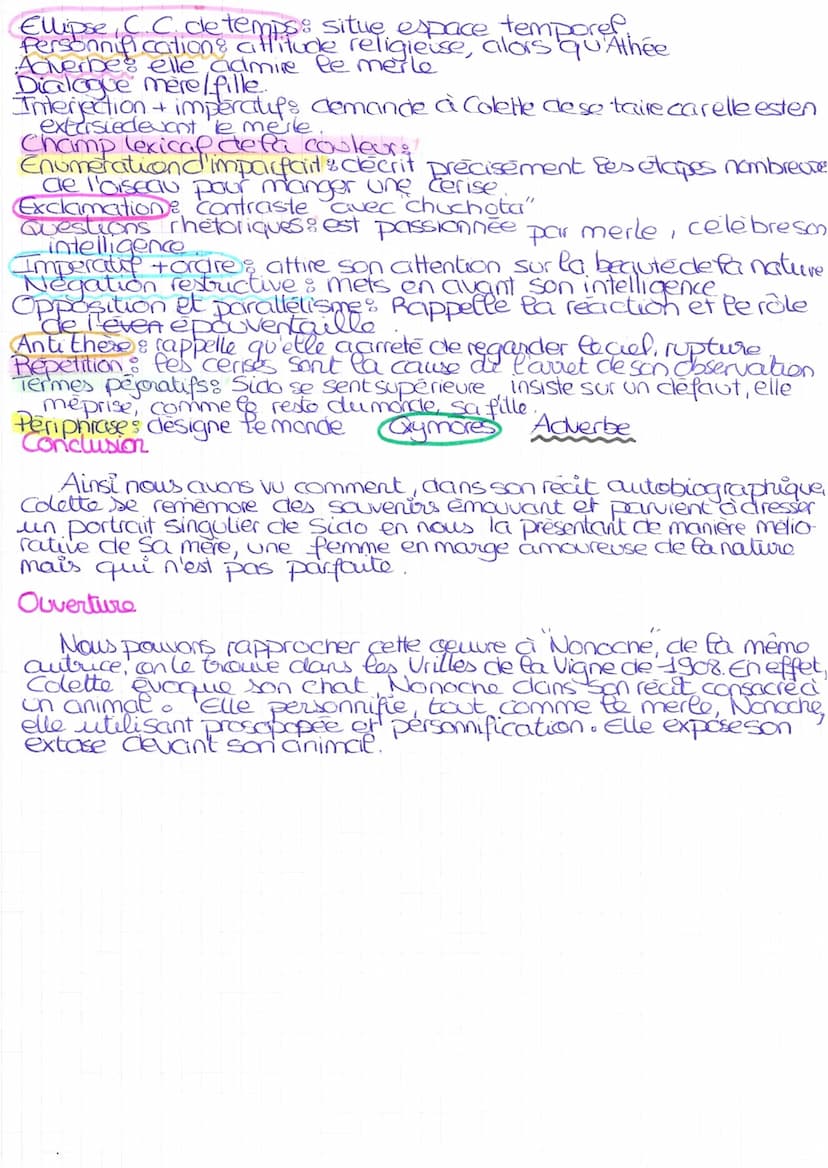 Ellipse, C.C. de temps : situe espace temporel
Personnification : attitude religieuse, alors qu'Athée
Adverbe : elle admire le merle
Dialogue mère/fille.
Interjection + impératif : demande à Colette de se taire car elle est en
extasie devant le merle.
Champ lexical de la couleur :
Énumération d'imparfait : décrit précisément les étapes nombreuses
de l'oiseau pour manger une cerise.
Exclamation : contraste avec "chuchota"
Questions rhétoriques : est passionnée par merle, célèbre son
intelligence
Impératif + ordre : attire son attention sur la beauté de la nature
Négation restrictive : mets en avant son intelligence
Opposition et parallélisme : Rappelle la réaction et le rôle
de l' épouventaille.
Antithèse : rappelle qu'elle a arrêté de regarder le ciel, rupture
Répétition : les cerises sont la cause de l'arret de son observation
Termes péjoratifs : Sido se sent supérieure insiste sur un défaut, elle
méprise, comme le reste du monde, sa fille.
Périphrase : désigne le monde Oxymores Adverbe
Conclusion
Ainsi nous avons vu comment, dans son récit autobiographique,
Colette se remémore des souvenirs émouvant et parvient à dresser
un portrait singulier de Sido en nous la présentant de manière mélio-
rative de sa mère, une femme en marge amoureuse de la nature
mais qui n'est pas parfaite.
Ouverture
Nous pouvons rapprocher cette œuvre à "Nonoche", de la même
autrice, on le trouve dans les Vrilles de la Vigne de 1908. En effet,
Colette évoque son chat, Nonoche dans son récit consacré à
un animal. Elle personnifie, tout comme le merle, Nonoche,
elle utilisant prosopopée et personnification. Elle expose son
extase devant son animal.